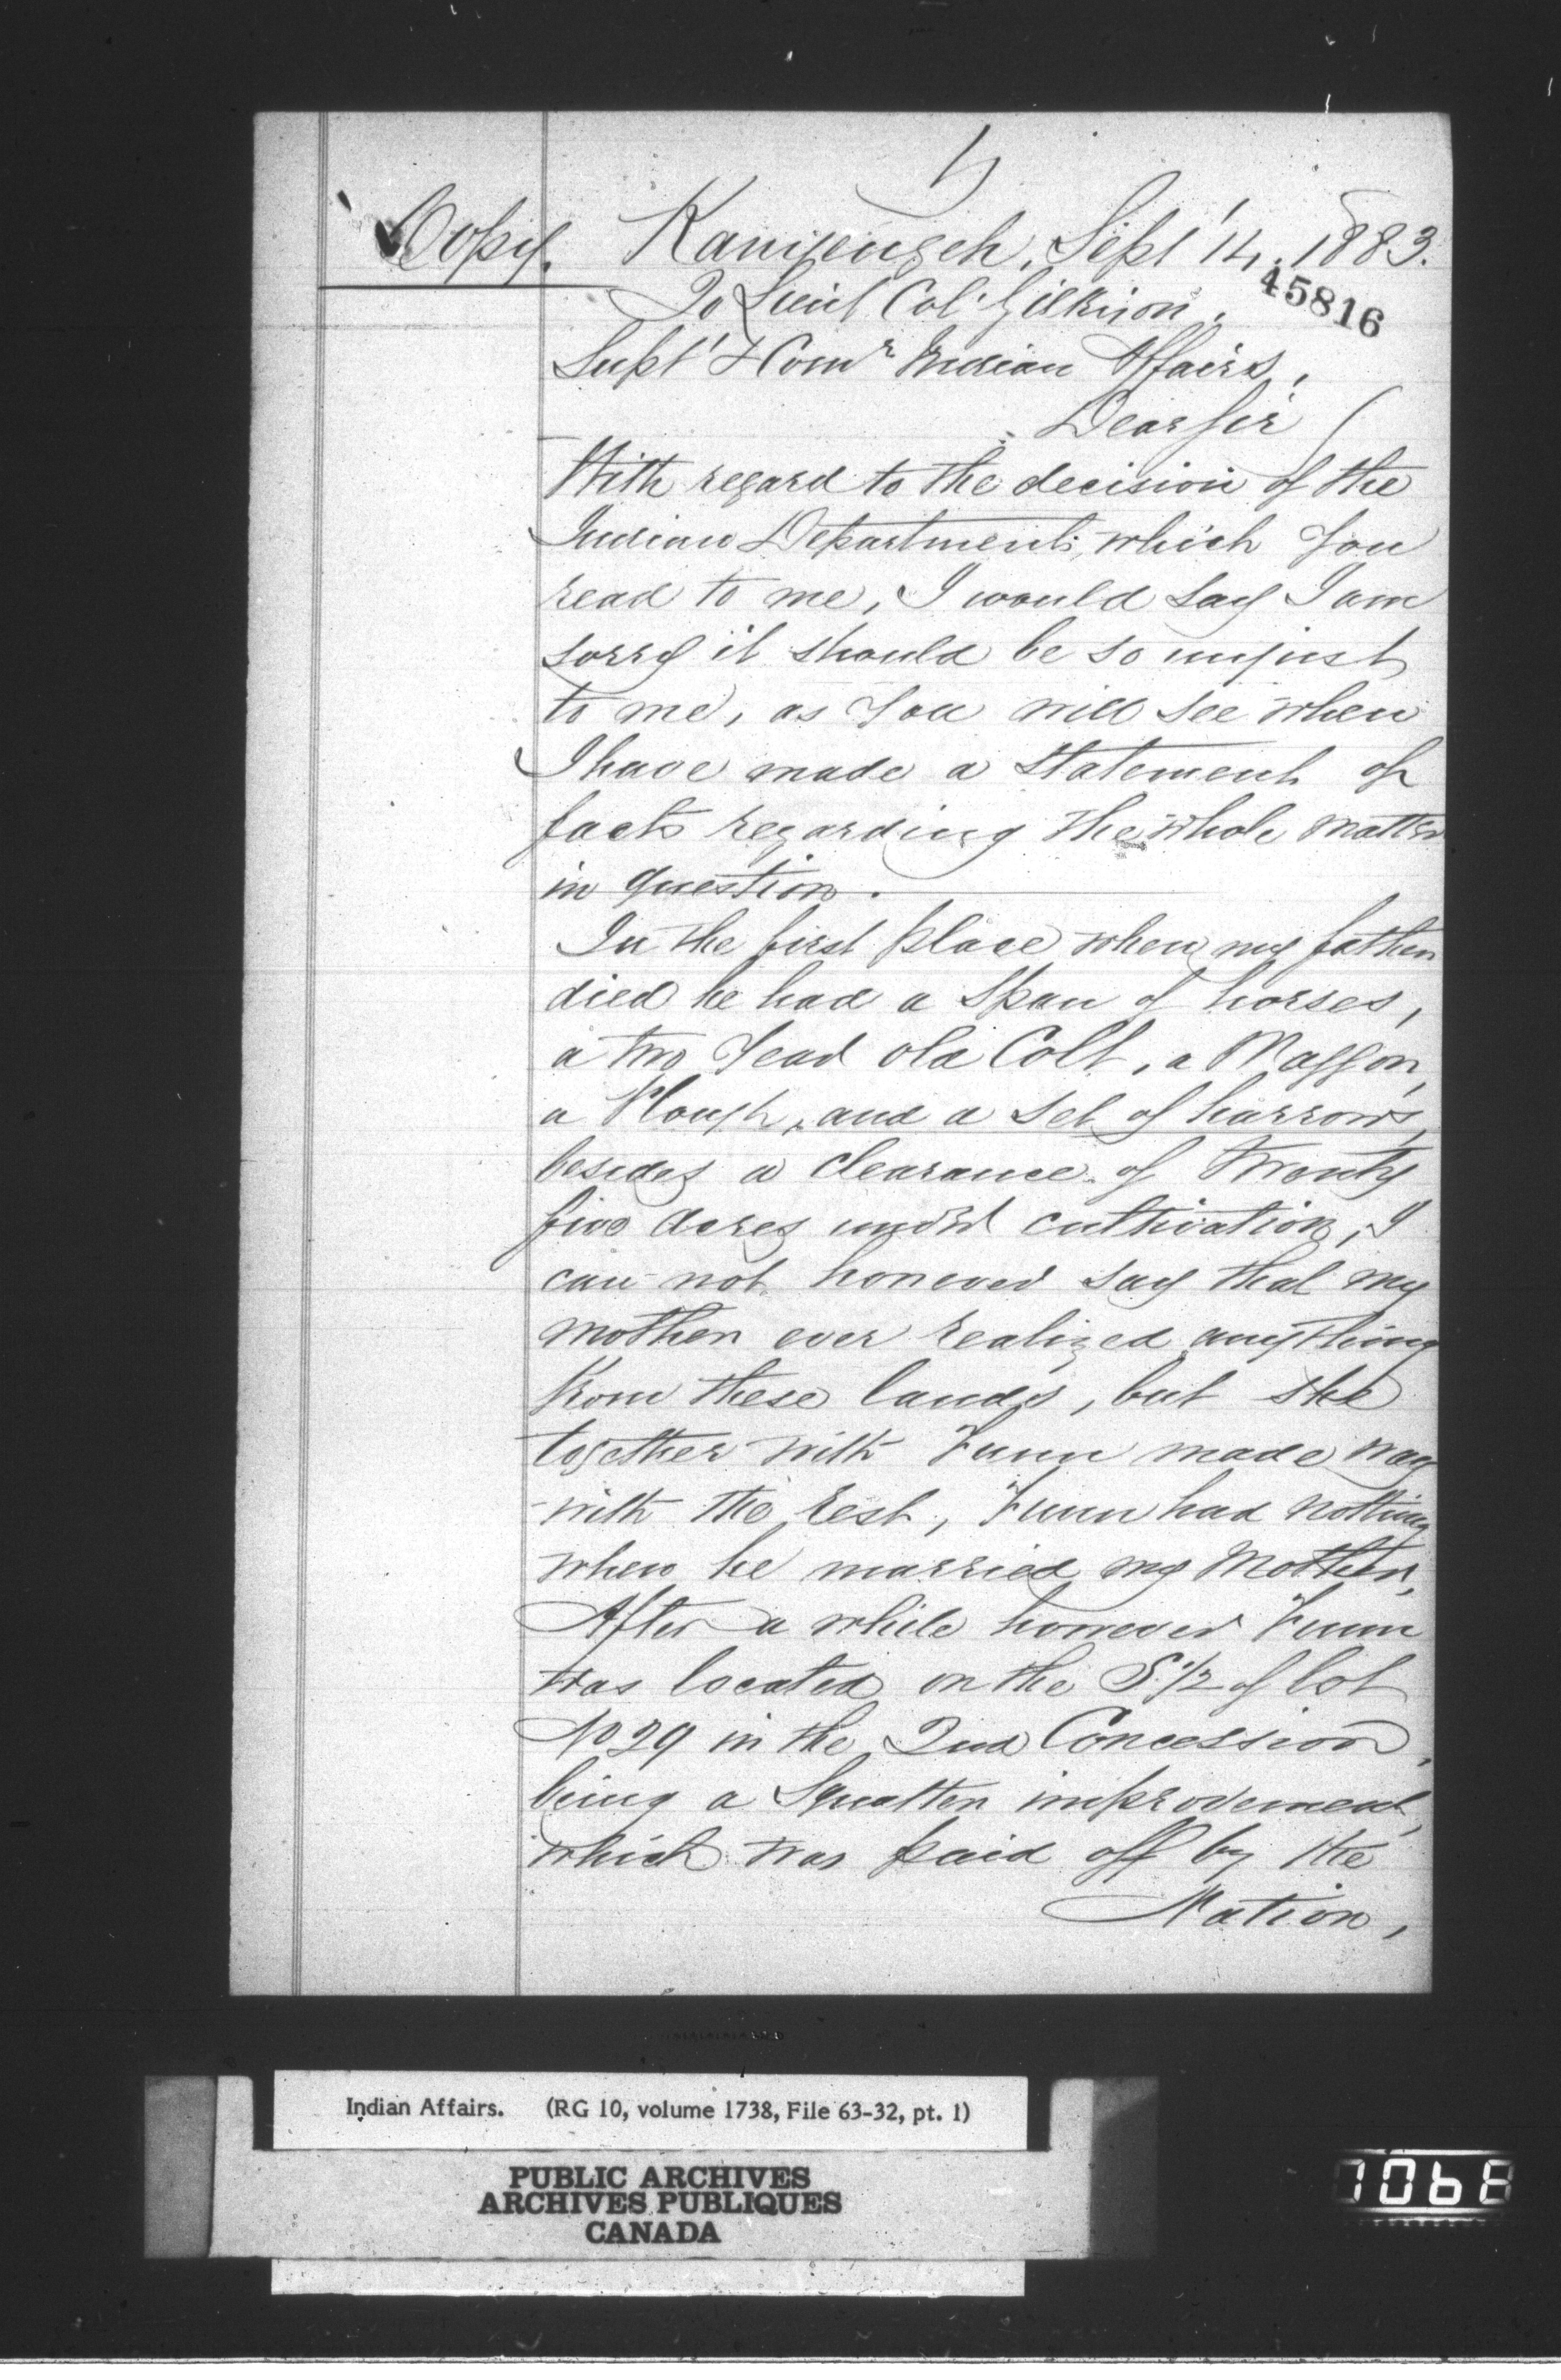 Copy. Kanyengeh, Sept 14, 1883.
45816
To Lieut Col. Gilkison,
Supt & Comr Indian Affairs,
Dear Sir
With regard to the decision of the
Indian Department, which you
read to me, I would say I am
sorry it should be so unjust
to me, as you will see when
I have made a statement of
facts regarding the whole matter
in question.
In the first place when my father
died he had a span of horses,
a two year old Colt, a Waggon,
a Plough, and a set of harrows,
besides a clearance of twenty
five acres under cultivation, I
can not however say that my
mother ever realized anything
from these lands, but she
together with Funn made way
with the rest, Funn had nothing
when he married my Mother,
After a while however Funn
was located on the S. 1/2 of lot
No 29 in the 2nd Concession,
being a Squatter improvement,
which was paid off by the
Nation,
Indian Affairs. (RG 10, volume 1738, File 63-32, pt. 1)
PUBLIC ARCHIVES
ARCHIVES PUBLIQUES
CANADA